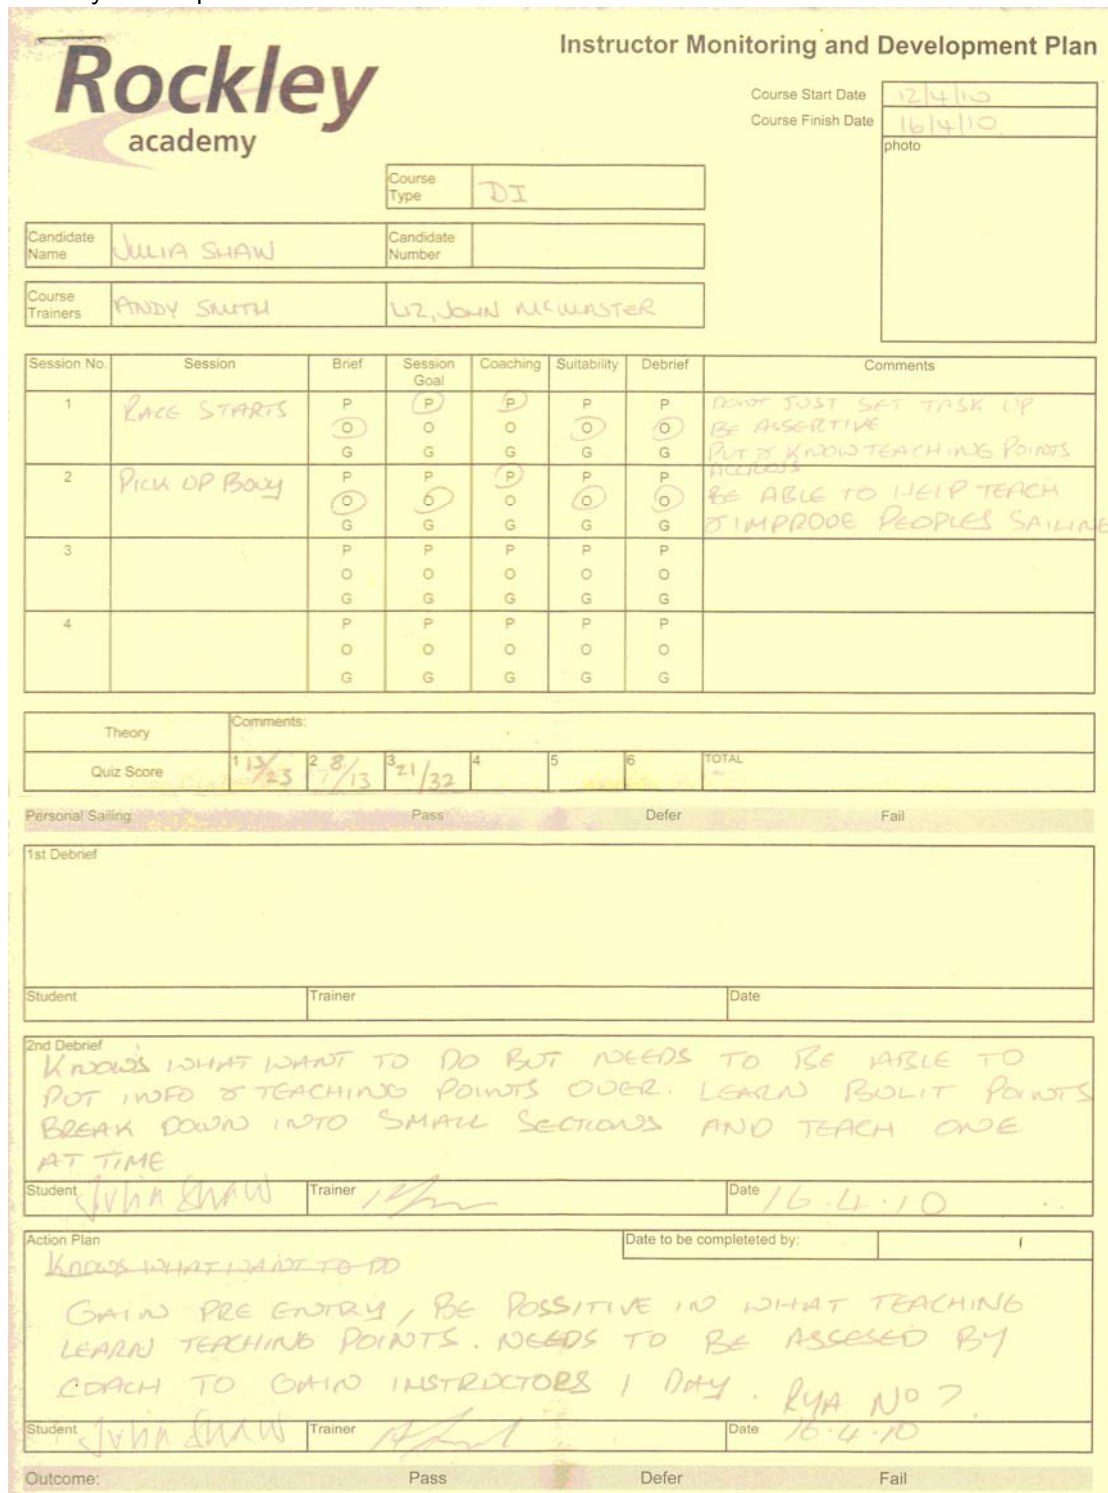 Rockley
academy
Instructor Monitoring and Development Plan
Course Start Date 12/4/10
Course Finish Date 16/4/10
photo
Course Type DI
Candidate Name JULIA SHAW Candidate Number
Course Trainers ANDY SMITH LIZ, JOHN MCMASTER
Session No. Session Brief Session Goal Coaching Suitability Debrief Comments
1 RACE STARTS P P P P P DONT JUST SET TASK UP
O O O O O BE ASSERTIVE
G G G G G PUT & KNOW TEACHING POINTS
ACCROSS
2 PICK UP BOUY P P P P P
O O O O O BE ABLE TO HELP TEACH
G G G G G & IMPROVE PEOPLES SAILING
3 P P P P P
O O O O O
G G G G G
4 P P P P P
O O O O O
G G G G G
Theory Comments:
Quiz Score 1 13/23 2 8/13 3 21/32 4 5 6 TOTAL
Personal Sailing: Pass Defer Fail
1st Debrief
Student Trainer Date
2nd Debrief
KNOWS WHAT WANT TO DO BUT NEEDS TO BE ABLE TO
PUT INFO & TEACHING POINTS OVER. LEARN BULIT POINTS
BREAK DOWN INTO SMALL SECTIONS AND TEACH ONE
AT TIME
Student Julia Shaw Trainer Date 16.4.10
Action Plan Date to be completeted by:
KNOWS WHAT WANT TO DO
GAIN PRE ENTRY, BE POSSITIVE IN WHAT TEACHING
LEARN TEACHING POINTS. NEEDS TO BE ASSESED BY
COACH TO GAIN INSTRUCTORS 1 DAY. RYA No ?
Student Julia Shaw Trainer Date 16.4.10
Outcome: Pass Defer Fail